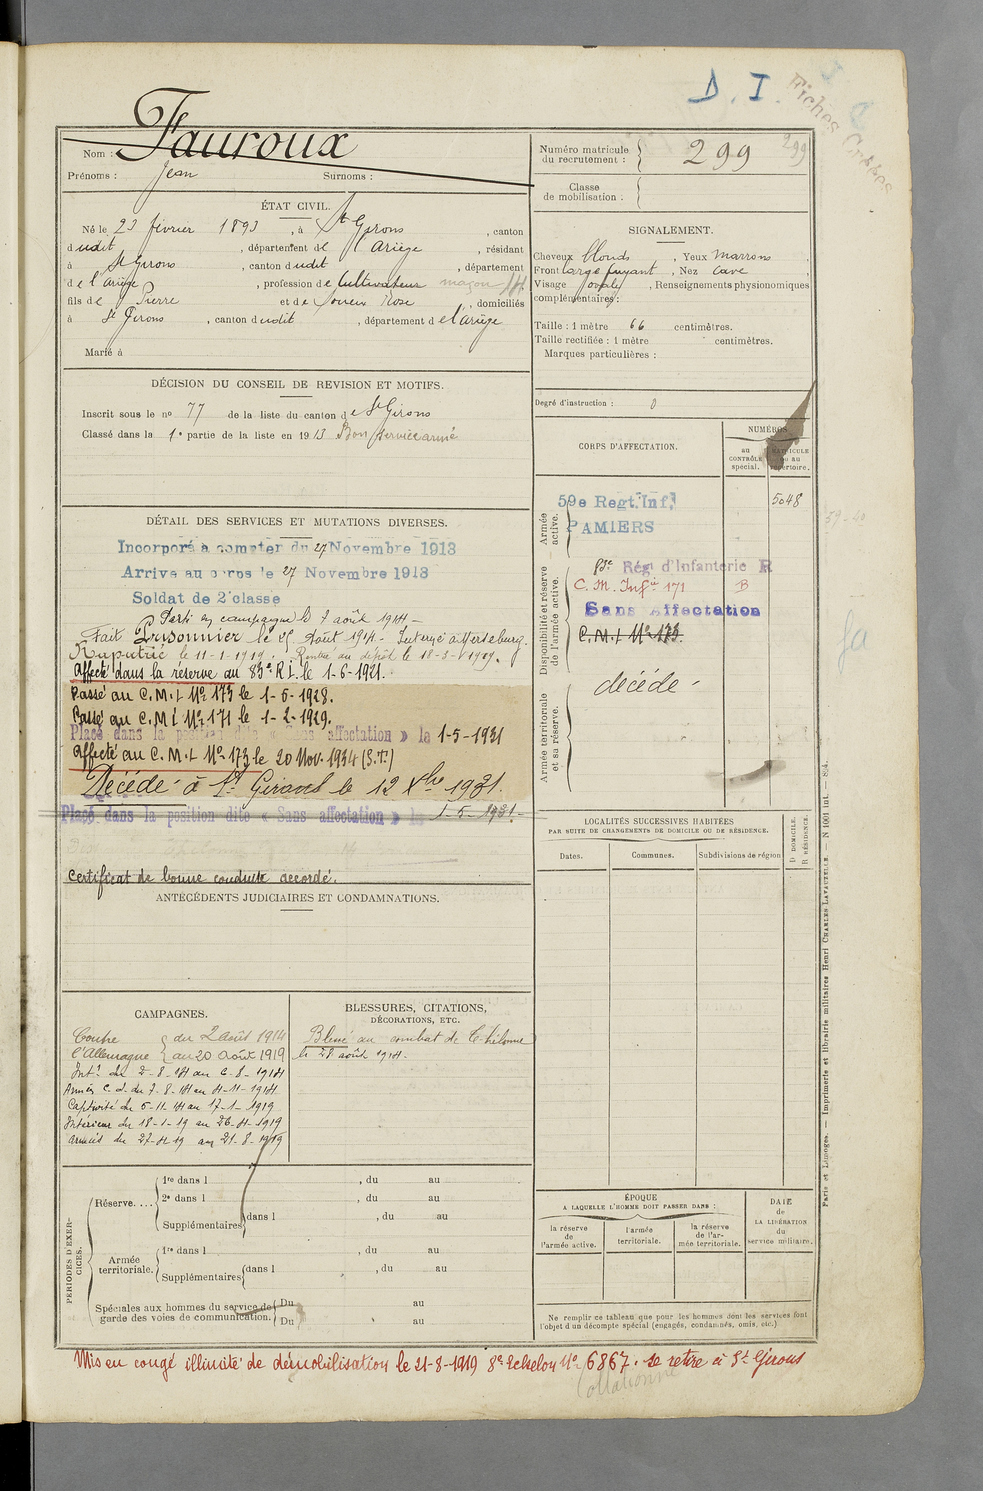 D. I.
Fiches
299
Nom : Fauroux
Prénoms : Jean Surnoms :
Numéro matricule du recrutement : 299
Classe de mobilisation :
ÉTAT CIVIL.
Né le 23 février 1893, à St Girons, canton
dudit, département de l'Ariège, résidant
à St Girons, canton dudit, département
de l'Ariège, profession de Cultivateur maçon
fils de Pierre et de Rose, domiciliés
à St Girons, canton dudit, département de l'ariège
Marié à
SIGNALEMENT.
Cheveux blonds, Yeux marrons
Front large fuyant, Nez cave,
Visage ovale, Renseignements physionomiques
complémentaires :
Taille : 1 mètre 66 centimètres.
Taille rectifiée : 1 mètre centimètres.
Marques particulières :
DÉCISION DU CONSEIL DE REVISION ET MOTIFS.
Inscrit sous le no 77 de la liste du canton de St Girons
Classé dans la 1e partie de la liste en 1913 Bon service armé
Degré d'instruction : 0
CORPS D'AFFECTATION.
NUMÉROS
au CONTRÔLE spécial.
MATRICULE ou au répertoire.
Armée active.
59e Regt. Inf. 5048
PAMIERS
Disponibilité et réserve de l'armée active.
83e Régt d'Infanterie R
C. M. Infie 171 B
Sans Affectation
C.M.I No 173.
Armée territoriale et sa réserve.
décédé -
DÉTAIL DES SERVICES ET MUTATIONS DIVERSES.
Incorporé à compter du 27 Novembre 1913
Arrivé au corps le 27 Novembre 1913
Soldat de 2e classe
Parti en campagne le 7 août 1914 -
Fait Prisonnier le 25 Août 1914. Interné à Merseburg.
Rapatrié le 11-1-1919. Rentré au dépôt le 18-3-1919.
Affecté dans la réserve au 83e R.I. le 1-6-1921.
Passé au C.M.I No 173 le 1-6-1928.
Passé au C.M.I No 171 le 1-2-1929.
Placé dans la position dite « Sans affectation » le 1-5-1931
Affecté au C.M.I No 173 le 20 Nov. 1934 (S.T.)
Décédé à St Girons le 12 Xbre 1931.
Placé dans la position dite « Sans affectation » le 1-5-1931.
Certificat de bonne conduite accordé.
ANTÉCÉDENTS JUDICIAIRES ET CONDAMNATIONS.
LOCALITÉS SUCCESSIVES HABITÉES
PAR SUITE DE CHANGEMENTS DE DOMICILE OU DE RÉSIDENCE.
D DOMICILE.
R RÉSIDENCE.
Dates. Communes. Subdivisions de région
CAMPAGNES.
Contre l'Allemagne { du 2 août 1914
au 20 Août 1919
Intr du 2-8-14 au 6-8-1914
Armées C. d. du 7-8-14 au 4-11-1914
Captivité du 5-11-14 au 17-1-1919
Intérieur du 18-1-19 au 26-4-1919
armées du 27-4-19 au 21-8-1919
BLESSURES, CITATIONS,
DÉCORATIONS, ETC.
Blessé au combat de
le 28 août 1914.
PÉRIODES D'EXERCICES.
Réserve....
1re dans l , du au
2e dans l , du au
Supplémentaires dans l , du au
Armée territoriale.
1re dans l , du au
Supplémentaires dans l , du au
Spéciales aux hommes du service de garde des voies de communication.
Du au
Du au
ÉPOQUE
A LAQUELLE L'HOMME DOIT PASSER DANS :
la réserve de l'armée active.
l'armée territoriale.
la réserve de l'armée territoriale.
DATE de LA LIBÉRATION du service militaire.
Ne remplir ce tableau que pour les hommes dont les services font
l'objet d'un décompte spécial (engagés, condamnés, omis, etc.)
Paris et Limoges. — Imprimerie et librairie militaires Henri CHARLES-LAVAUZELLE. — N 1001 Int. — 8-4.
Mis en congé illimité de démobilisation le 21-8-1919 8e Echelon No 6867. se retire à St Girons
Collationné